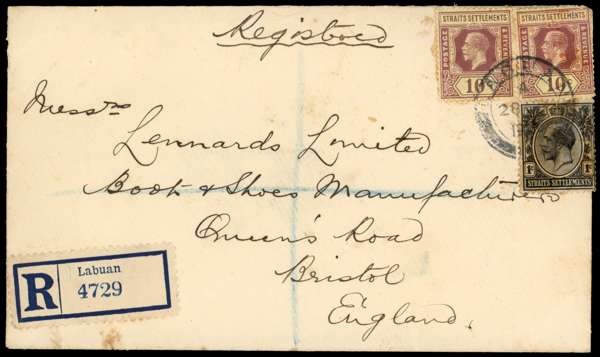 Registered
STRAITS SETTLEMENTS
POSTAGE & REVENUE
10c
STRAITS SETTLEMENTS
POSTAGE & REVENUE
10c
28
1c 1c
STRAITS SETTLEMENTS
Messrs
Lennards Limited
Boot & Shoes Manufacturers
Queen's Road
Bristol
England.
R
Labuan
4729